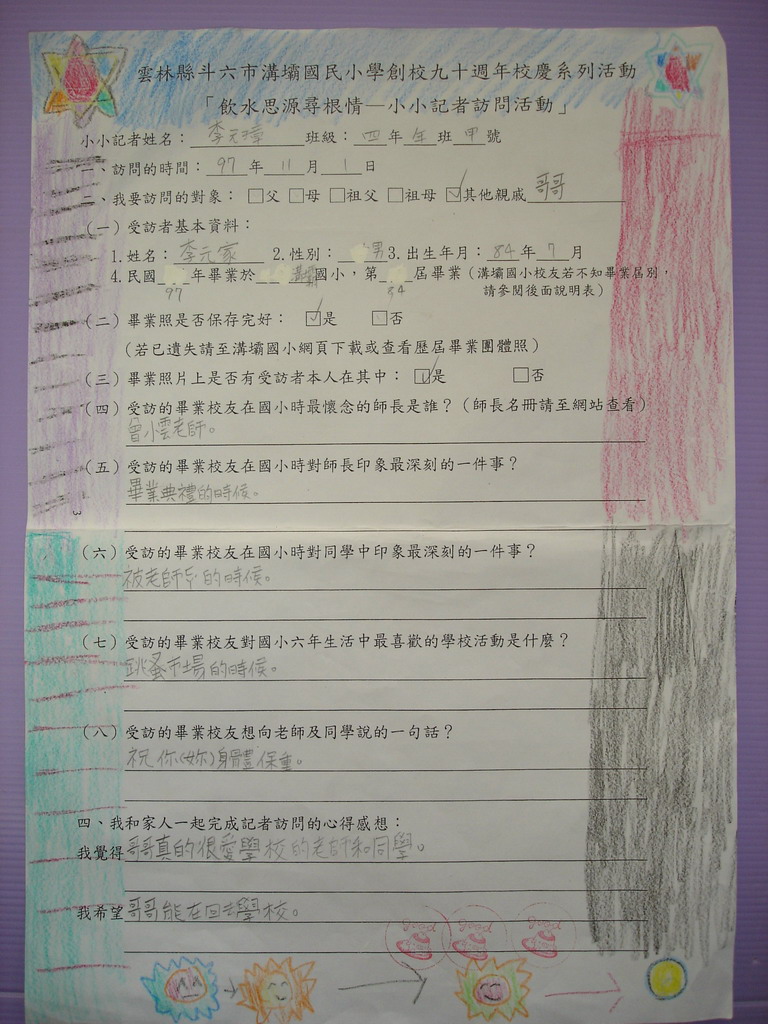 雲林縣斗六市溝壩國民小學創校九十週年校慶系列活動
「飲水思源尋根情—小小記者訪問活動」
小小記者姓名：李元 班級：四年年班甲號
一、訪問的時間：97年11月1日
二、我要訪問的對象：□父 □母 □祖父 □祖母 ☑其他親戚哥哥
(一)受訪者基本資料：
1.姓名：李元家 2.性別：男3.出生年月：84年7月
4.民國97年畢業於溝壩國小，第34屆畢業(溝壩國小校友若不知畢業屆別，
請參閱後面說明表)
(二)畢業照是否保存完好：☑是 □否
(若已遺失請至溝壩國小網頁下載或查看歷屆畢業團體照)
(三)畢業照片上是否有受訪者本人在其中：☑是 □否
(四)受訪的畢業校友在國小時最懷念的師長是誰？(師長名冊請至網站查看)
曾小雲老師。
(五)受訪的畢業校友在國小時對師長印象最深刻的一件事？
畢業典禮的時候。
3
(六)受訪的畢業校友在國小時對同學中印象最深刻的一件事？
被老師的時候。
(七)受訪的畢業校友對國小六年生活中最喜歡的學校活動是什麼？
跳蚤市場的時候。
(八)受訪的畢業校友想向老師及同學說的一句話？
祝你(妳)身體保重。
四、我和家人一起完成記者訪問的心得感想：
我覺得哥哥真的很愛學校的老師和同學。
我希望哥哥能在回去學校。
Good Good Good